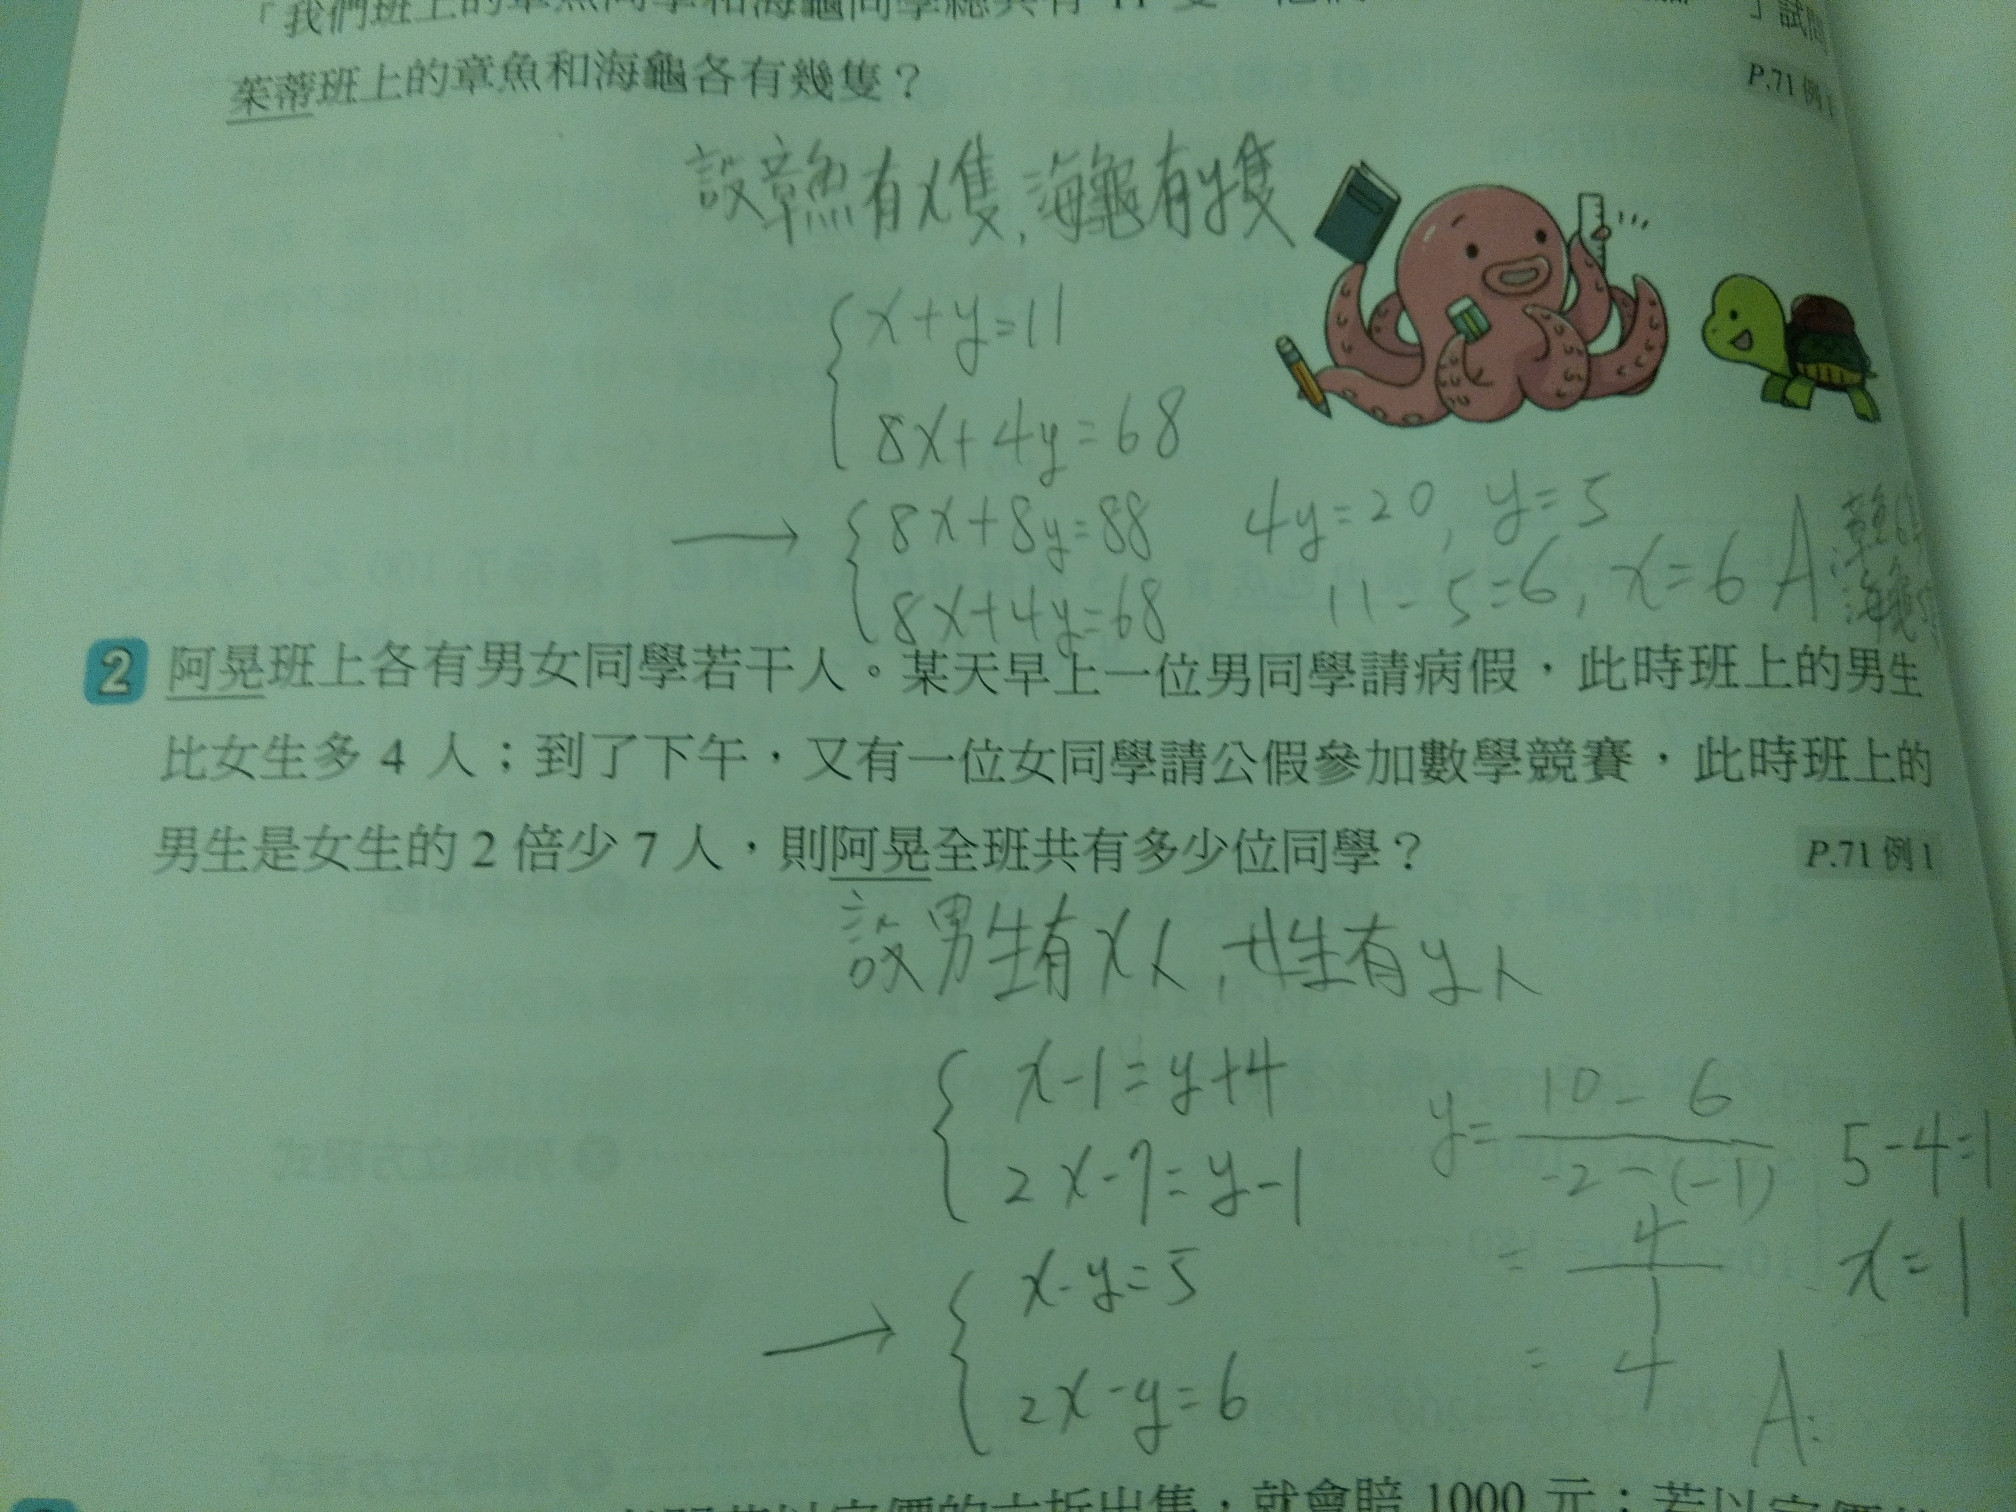 「我們班上的章魚同學和海龜同學總共有 11 隻
」試問
茱蒂班上的章魚和海龜各有幾隻？
P.71 例1
設章魚有x隻,海龜有y隻
x+y=11
8x+4y=68
→ 8x+8y=88
8x+4y=68
4y=20, y=5
11-5=6, x=6
A:章魚6
海龜5
2 阿晃班上各有男女同學若干人。某天早上一位男同學請病假，此時班上的男生
比女生多 4 人；到了下午，又有一位女同學請公假參加數學競賽，此時班上的
男生是女生的 2 倍少 7 人，則阿晃全班共有多少位同學？
P.71 例1
設男生有x人,女生有y人
x-1=y+4
2x-7=y-1
→ x-y=5
2x-y=6
y= 10-6
-2-(-1)
= 4
1
= 4
5-4=1
x=1
A:
1000 元；若以定價